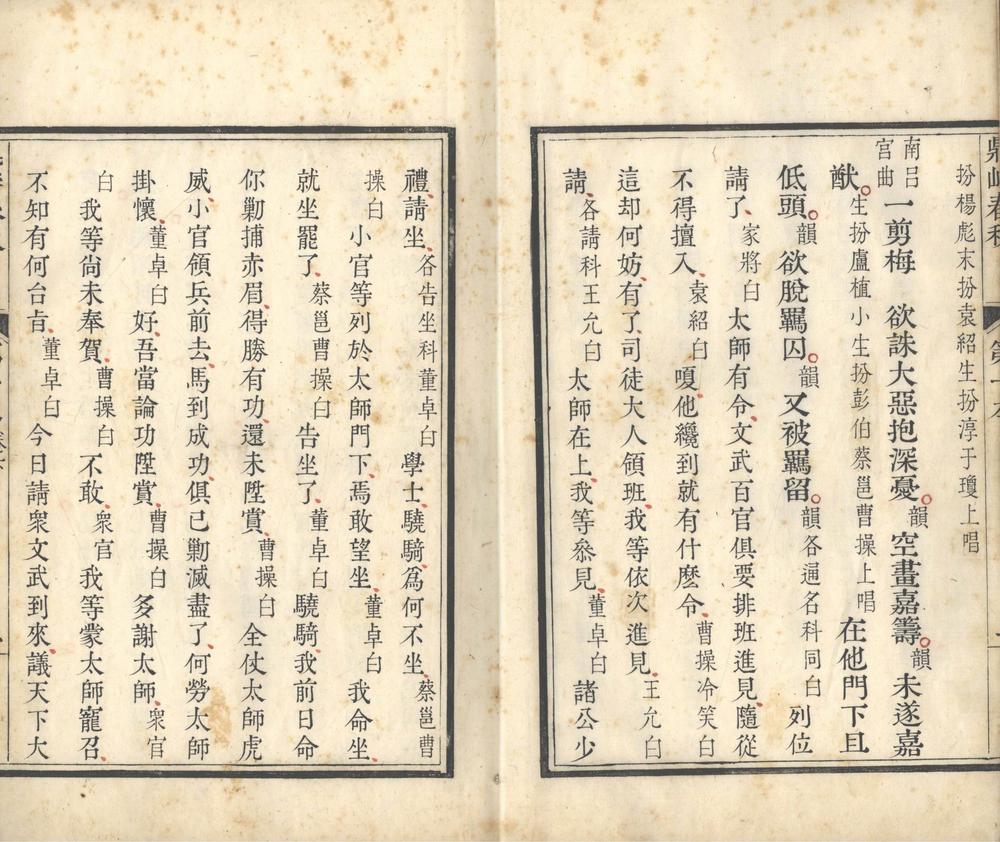 鼎峙春秋
扮楊彪末扮袁紹生扮淳于瓊上唱
南呂宮曲一剪梅 欲誅大惡抱深憂。韻空畫嘉籌。韻未遂嘉
猷。生扮盧植小生扮彭伯蔡邕曹操上唱在他門下且
低頭。韻欲脫羈囚。韻又被羈留。韻各通名科同白列位
請了、家將白太師有令、文武百官俱要排班進見、隨從
不得擅入、袁紹白嗄、他纔到就有什麽令、曹操冷笑白
這却何妨、有了、司徒大人領班、我等依次進見、王允白
請、各請科王允白太師在上、我等叅見、董卓白諸公少
禮、請坐、各告坐科董卓白學士、驍騎、爲何不坐、蔡邕曹
操白小官等列於太師門下、焉敢望坐、董卓白我命坐、
就坐罷了、蔡邕曹操白告坐了、董卓白驍騎、我前日命
你勦捕赤眉、得勝有功、還未陞賞、曹操白全仗太師虎
威、小官領兵前去、馬到成功、俱已勦滅盡了、何勞太師
掛懷、董卓白好、吾當論功陞賞、曹操白多謝太師、衆官
白我等尚未奉賀、曹操白不敢、衆官我等蒙太師寵召、
不知有何台旨、董卓白今日請衆文武到來、議天下大